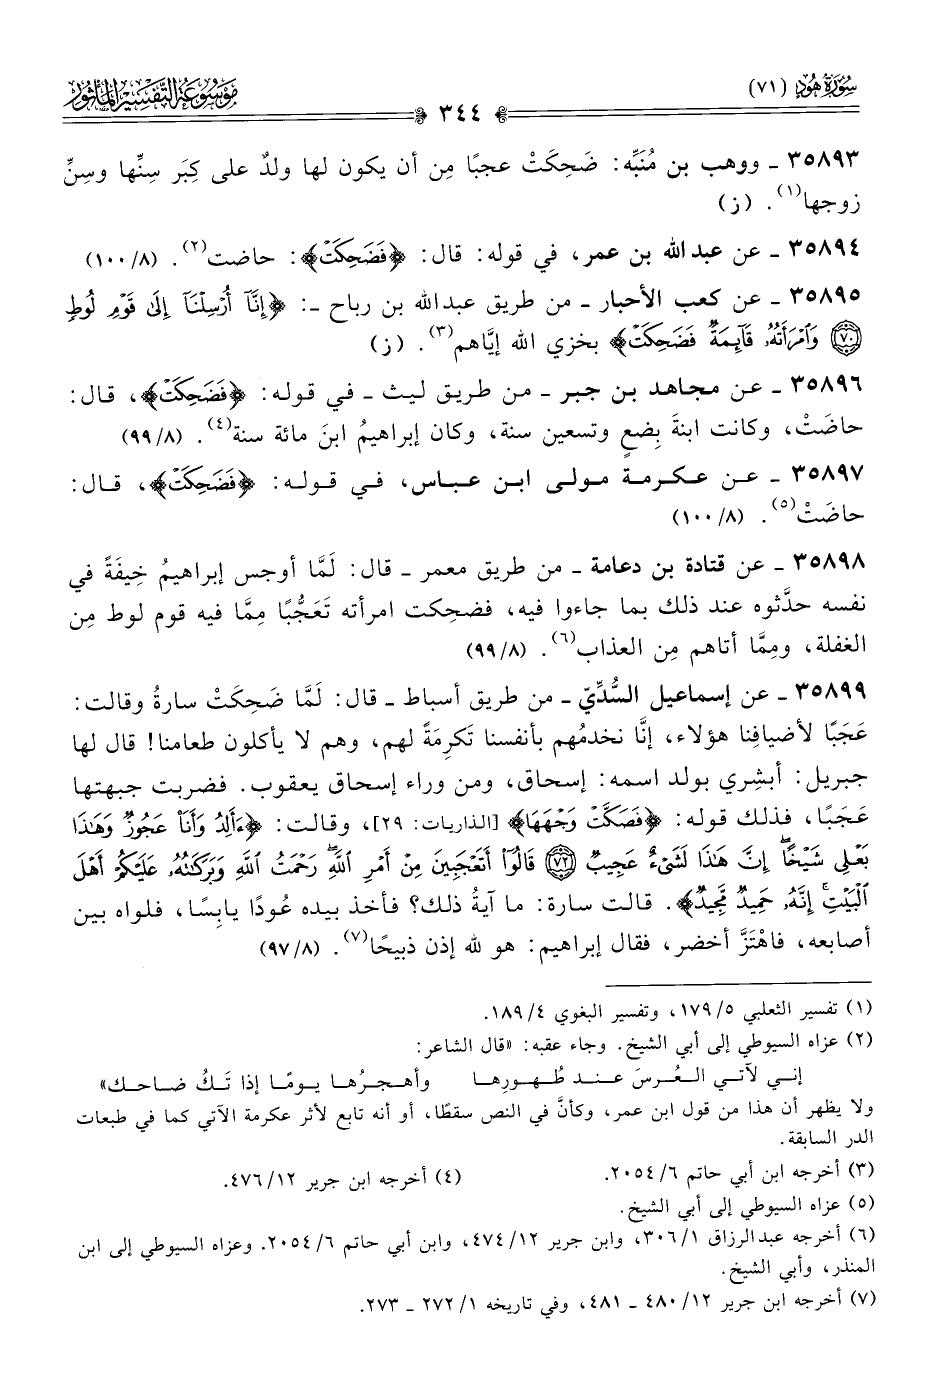 سُورَةُ هُودٍ (٧١)
مَوْسُوعَة التَّفْسِيرِ المَأثُور
٣٤٤
٣٥٨٩٣ ـ ووهب بن مُنَبِّه: ضَحِكَتْ عجبًا مِن أن يكون لها ولدٌ على كِبَر سِنِّها وسِنِّ
زوجها(١). (ز)
٣٥٨٩٤ ـ عن عبد الله بن عمر، في قوله: قال: ﴿فَضَحِكَتْ﴾: حاضت(٢). (٨/ ١٠٠)
٣٥٨٩٥ ـ عن كعب الأحبار ـ من طريق عبد الله بن رباح ـ: ﴿إِنَّآ أُرْسِلْنَآ إِلَىٰ قَوْمِ لُوطٍ
٧٠ وَٱمْرَأَتُهُۥ قَآئِمَةٌ فَضَحِكَتْ﴾ بخزي الله إيَّاهم(٣). (ز)
٣٥٨٩٦ ـ عن مجاهد بن جبر ـ من طريق ليث ـ في قوله: ﴿فَضَحِكَتْ﴾، قال:
حاضَتْ، وكانت ابنةَ بِضعٍ وتسعين سنة، وكان إبراهيمُ ابنَ مائة سنة(٤). (٨/ ٩٩)
٣٥٨٩٧ ـ عن عكرمة مولى ابن عباس، في قوله: ﴿فَضَحِكَتْ﴾، قال:
حاضَتْ(٥). (٨/ ١٠٠)
٣٥٨٩٨ ـ عن قتادة بن دعامة ـ من طريق معمر ـ قال: لَمَّا أوجس إبراهيمُ خِيفَةً في
نفسه حدَّثوه عند ذلك بما جاءوا فيه، فضحكت امرأته تَعَجُّبًا مِمَّا فيه قوم لوط مِن
الغفلة، ومِمَّا أتاهم مِن العذاب(٦). (٨/ ٩٩)
٣٥٨٩٩ ـ عن إسماعيل السُّدِّيّ ـ من طريق أسباط ـ قال: لَمَّا ضَحِكَتْ سارةُ وقالت:
عَجَبًا لأضيافِنا هؤلاء، إنَّا نخدمُهم بأنفسنا تَكرِمَةً لهم، وهم لا يأكلون طعامنا! قال لها
جبريل: أبشِري بولد اسمه: إسحاق، ومن وراء إسحاق يعقوب. فضربت جبهتها
عَجَبًا، فذلك قوله: ﴿فَصَكَّتْ وَجْهَهَا﴾ [الذاريات: ٢٩]، وقالت: ﴿ءَأَلِدُ وَأَنَا۠ عَجُوزٌ وَهَٰذَا
بَعْلِى شَيْخًا إِنَّ هَٰذَا لَشَىْءٌ عَجِيبٌ ٧٢ قَالُوٓا۟ أَتَعْجَبِينَ مِنْ أَمْرِ ٱللَّهِ رَحْمَتُ ٱللَّهِ وَبَرَكَٰتُهُۥ عَلَيْكُمْ أَهْلَ
ٱلْبَيْتِ إِنَّهُۥ حَمِيدٌ مَّجِيدٌ﴾. قالت سارة: ما آيةُ ذلك؟ فأخذ بيده عُودًا يابِسًا، فلواه بين
أصابعه، فاهْتَزَّ أخضر، فقال إبراهيم: هو لله إذن ذبيحًا(٧). (٨/ ٩٧)
(١) تفسير الثعلبي ٥/ ١٧٩، وتفسير البغوي ٤/ ١٨٩.
(٢) عزاه السيوطي إلى أبي الشيخ. وجاء عقبه: «قال الشاعر:
إني لآتي العُرسَ عند طُهورِها وأهجرُها يومًا إذا تَكُ ضاحك»
ولا يظهر أن هذا من قول ابن عمر، وكأنَّ في النص سقطًا، أو أنه تابع لأثر عكرمة الآتي كما في طبعات
الدر السابقة.
(٣) أخرجه ابن أبي حاتم ٦/ ٢٠٥٤. (٤) أخرجه ابن جرير ١٢/ ٤٧٦.
(٥) عزاه السيوطي إلى أبي الشيخ.
(٦) أخرجه عبد الرزاق ١/ ٣٠٦، وابن جرير ١٢/ ٤٧٤، وابن أبي حاتم ٦/ ٢٠٥٤. وعزاه السيوطي إلى ابن
المنذر، وأبي الشيخ.
(٧) أخرجه ابن جرير ١٢/ ٤٨٠ ـ ٤٨١، وفي تاريخه ١/ ٢٧٢ ـ ٢٧٣.